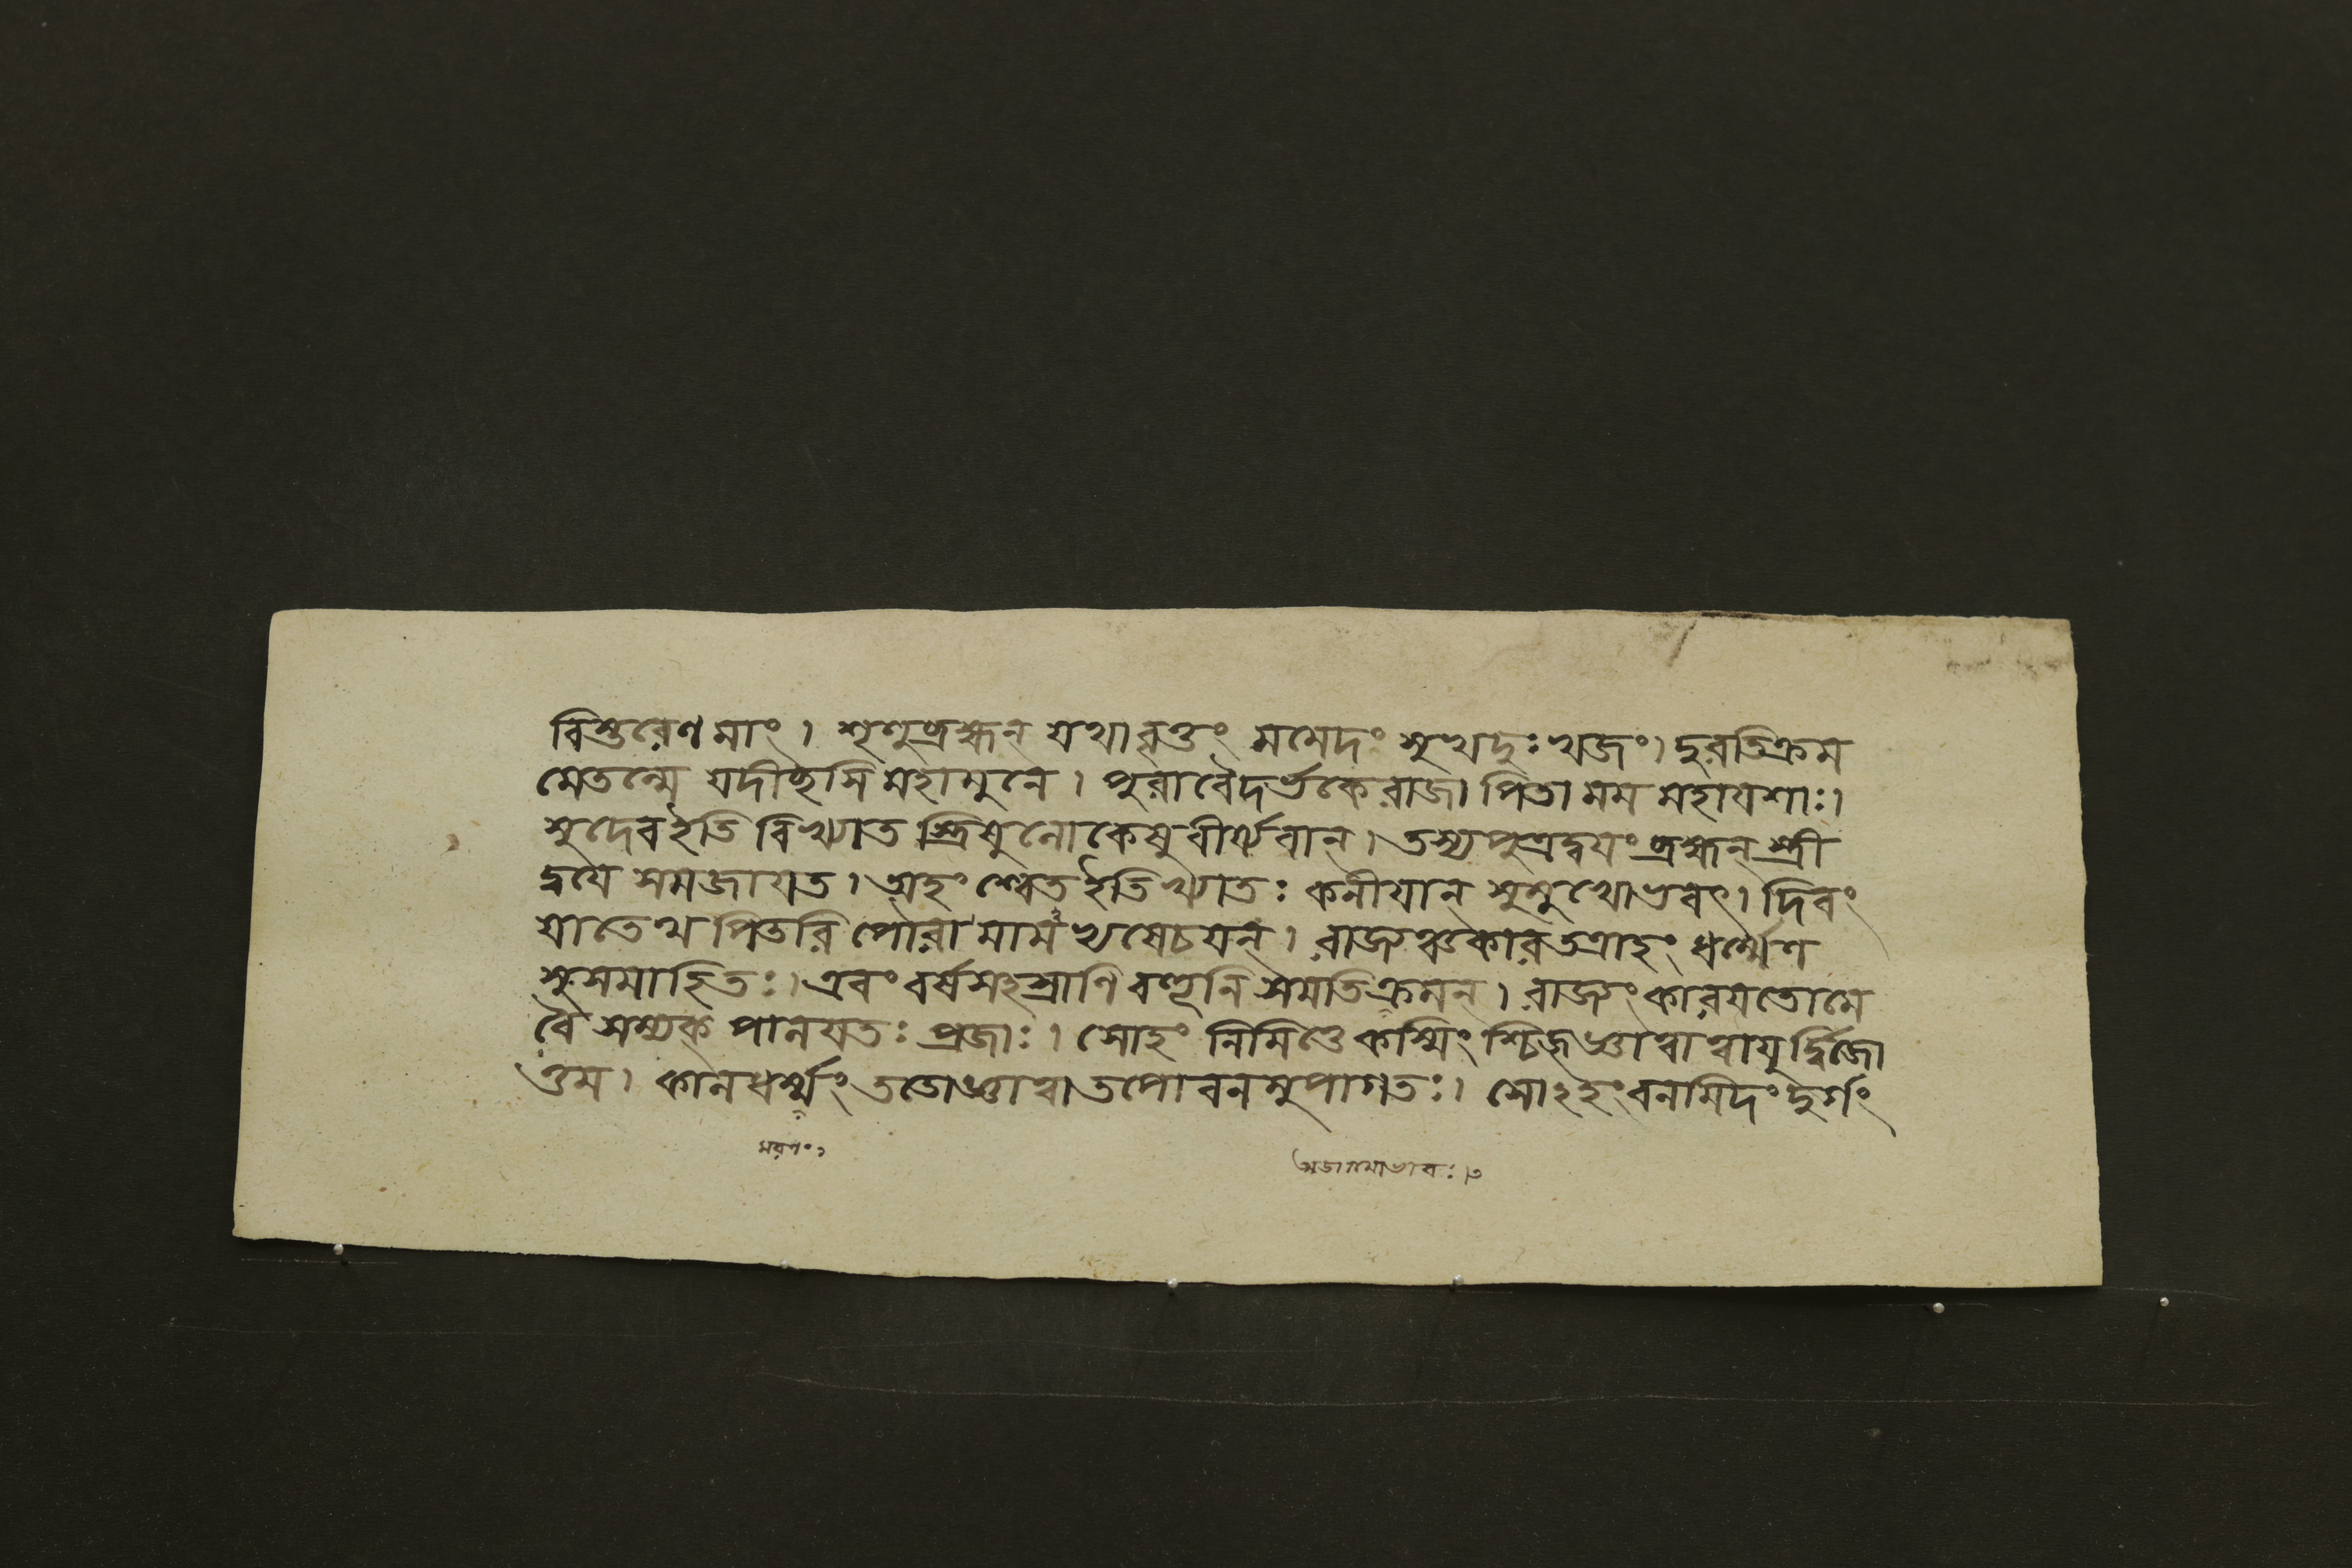 বিস্তরেণ মাং। শৃণুব্রহ্মন্ যথাবৃত্তং মমেদং সুখদুঃখজং। দুরতিক্রম
মেতন্মে যদীচ্ছসি মহামুনে। পুরাবৈদর্ভকোরাজা পিতা মম মহাযশাঃ।
সুদেবইতি বিখ্যাত স্ত্রিষুলোকেষুবীর্য্যবান্। তস্যপুত্রদ্বযংব্রহ্মন্ স্ত্রী
দ্বযে সমজাযত। অহং শ্বেত ইতিখ্যাতঃ কনীযান্ সুমুখোভবৎ। দিবং
যাতেথ পিতরি পৌরা মামভ্যষেচযন্। রাজ্যঞ্চকারতত্রাহং ধর্ম্মেণ
সুসমাহিতঃ। এবং বর্ষসহস্রাণি বহূনি সমতিক্রমন্। রাজ্যংকারযতোমে
বৈ সম্যক্ পালযতঃ প্রজাঃ। সোহং নিমিত্তেকস্মিংশ্চিজ্জ্ঞাত্বাত্বাযুর্দ্বিজো
ত্তম। কালধর্ম্মং ততোজ্ঞাত্বাতপোবনমুপাগতঃ। সোঽহংবনমিদংদুর্গং
মরণং১